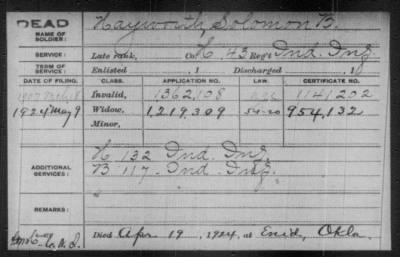 DEAD
NAME OF SOLDIER: Hayworth, Solomon B.
SERVICE: Late rank, Co. K, 43 Reg't Ind. Inf.
TERM OF SERVICE: Enlisted , 1 Discharged , 1
DATE OF FILING. CLASS. APPLICATION NO. LAW. CERTIFICATE NO.
1907 Invalid, 1362,108 1141202
1924 May 9 Widow, 1,219,309 954,132
Minor,
ADDITIONAL SERVICES: K. 132 Ind. Inf.
B 117 Ind. Inf.
REMARKS:
Died Apr 19, 1924, at Enid, Okla.